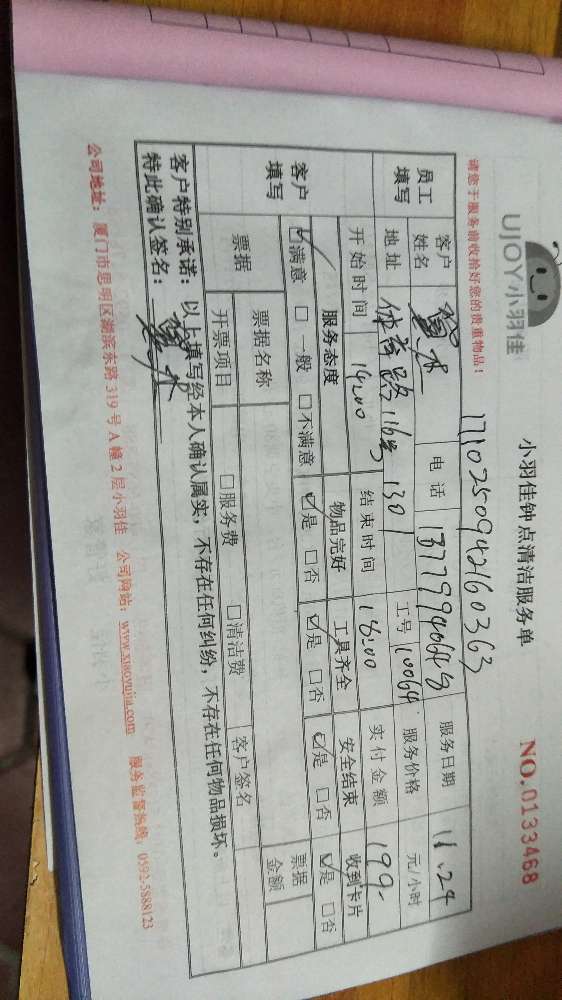 UJOY小羽佳
小羽佳钟点清洁服务单
NO.0133468
请您于服务前收拾好您的贵重物品！
1710250942160363
员工填写
客户姓名
电话
服务日期 11.24
地址 体育路116号1301
工号 10064
服务价格 元/小时
开始时间 14:00
结束时间 18:00
实付金额 199-
客户填写
服务态度 物品完好 工具齐全 安全结束 收到卡片
☑满意 □一般 □不满意 ☑是 □否 ☑是 □否 ☑是 □否 ☑是 □否
票据 票据名称 票据金额
开票项目 □服务费 □清洁费 客户签名
客户特别承诺：以上填写经本人确认属实，不存在任何纠纷，不存在任何物品损坏。
特此确认签名：
公司地址：厦门市思明区湖滨东路319号A幢2层小羽佳 公司网站：www.xiaoyujia.com 服务监督热线：0592-5888123